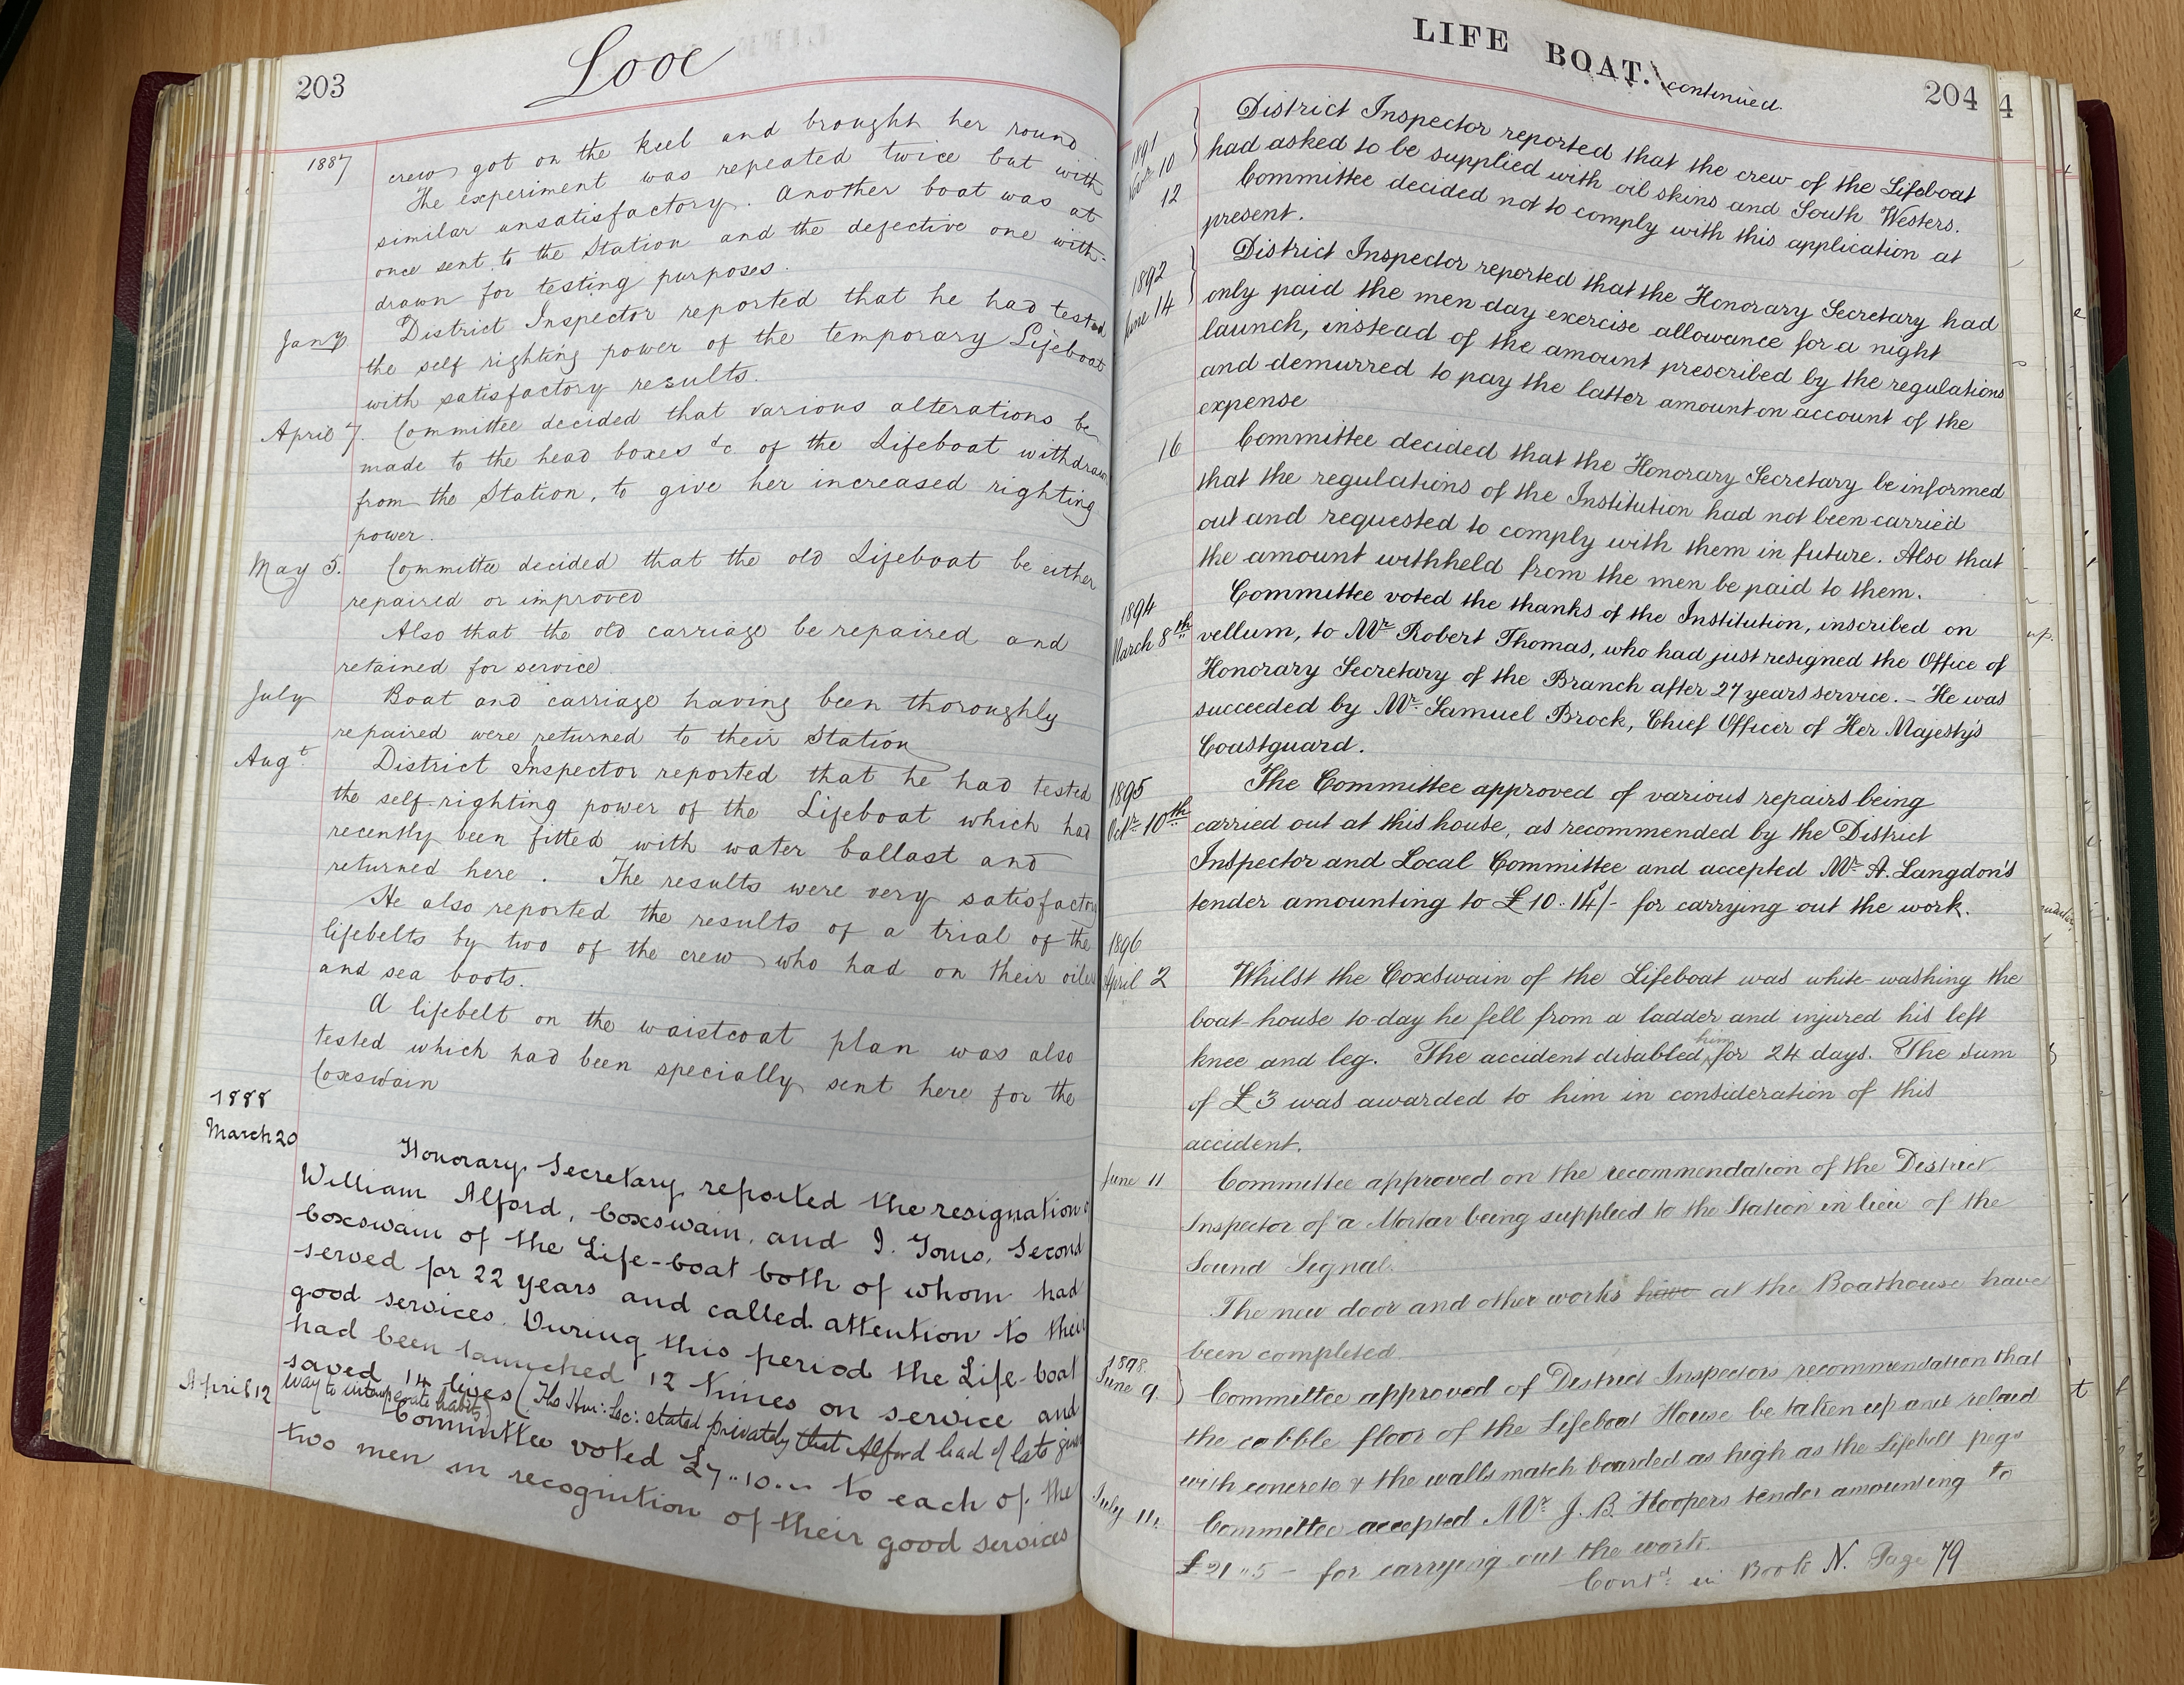 203
Looe
1887
crew got on the keel and brought her round
The experiment was repeated twice but with
similar unsatisfactory. Another boat was at
once sent to the Station and the defective one with-
drawn for testing purposes.
Jany
District Inspector reported that he had tested
the self righting power of the temporary Lifeboat
with satisfactory results.
April 7.
Committee decided that various alterations be
made to the head boxes &c of the Lifeboat withdrawn
from the Station, to give her increased righting
power.
May 5.
Committee decided that the old Lifeboat be either
repaired or improved
Also that the old carriage be repaired and
retained for service
July
Boat and carriage having been thoroughly
repaired were returned to their Station
Augt
District Inspector reported that he had tested
the self-righting power of the Lifeboat which had
recently been fitted with water ballast and
returned here. The results were very satisfactory
He also reported the results of a trial of the
lifebelts by two of the crew who had on their oilies
and sea boots.
A lifebelt on the waistcoat plan was also
tested which had been specially sent here for the
Coxswain
1888
March 20
Honorary Secretary reported the resignation of
William Alford, Coxswain, and J. Toms, Second
Coxswain of the Life-boat both of whom had
served for 22 years and called attention to their
good services. During this period the Life-boat
had been launched 12 times on service and
saved 14 lives (The Hon: Sec: stated privately that Alford had of late given
way to intemperate habits)
April 12
Committee voted £7..10.– to each of the
two men in recognition of their good services
LIFE BOAT. continued.
204
4
1891
Novr 10
District Inspector reported that the crew of the Lifeboat
had asked to be supplied with oil skins and South Westers.
12
Committee decided not to comply with this application at
present.
1892
June 14
District Inspector reported that the Honorary Secretary had
only paid the men day exercise allowance for a night
launch, instead of the amount prescribed by the regulations
and demurred to pay the latter amount on account of the
expense
16
Committee decided that the Honorary Secretary be informed
that the regulations of the Institution had not been carried
out and requested to comply with them in future. Also that
the amount withheld from the men be paid to them.
1894
March 8th
Committee voted the thanks of the Institution, inscribed on
vellum, to Mr Robert Thomas, who had just resigned the Office of
Honorary Secretary of the Branch after 27 years service. – He was
succeeded by Mr. Samuel Brock, Chief Officer of Her Majesty's
Coastguard.
1895
Octr 10th
The Committee approved of various repairs being
carried out at this house, as recommended by the District
Inspector and Local Committee and accepted Mr A. Langdon's
tender amounting to £10..14s/- for carrying out the work.
1896
April 2
Whilst the Coxswain of the Lifeboat was white-washing the
boat-house to-day he fell from a ladder and injured his left
knee and leg. The accident disabled him for 24 days. The sum
of £3 was awarded to him in consideration of this
accident.
June 11
Committee approved on the recommendation of the District
Inspector of a Mortar being supplied to the Station in lieu of the
Sound Signal.
The new door and other works have at the Boathouse have
been completed
1898.
June 9.
Committee approved of District Inspectors recommendation that
the cobble floor of the Lifeboat House be taken up and relaid
with concrete & the walls match boarded as high as the Lifebelt pegs
July 14.
Committee accepted Mr J. B. Hoopers tender amounting to
£21..5 – for carrying out the work.
Contd in Book N. Page 79